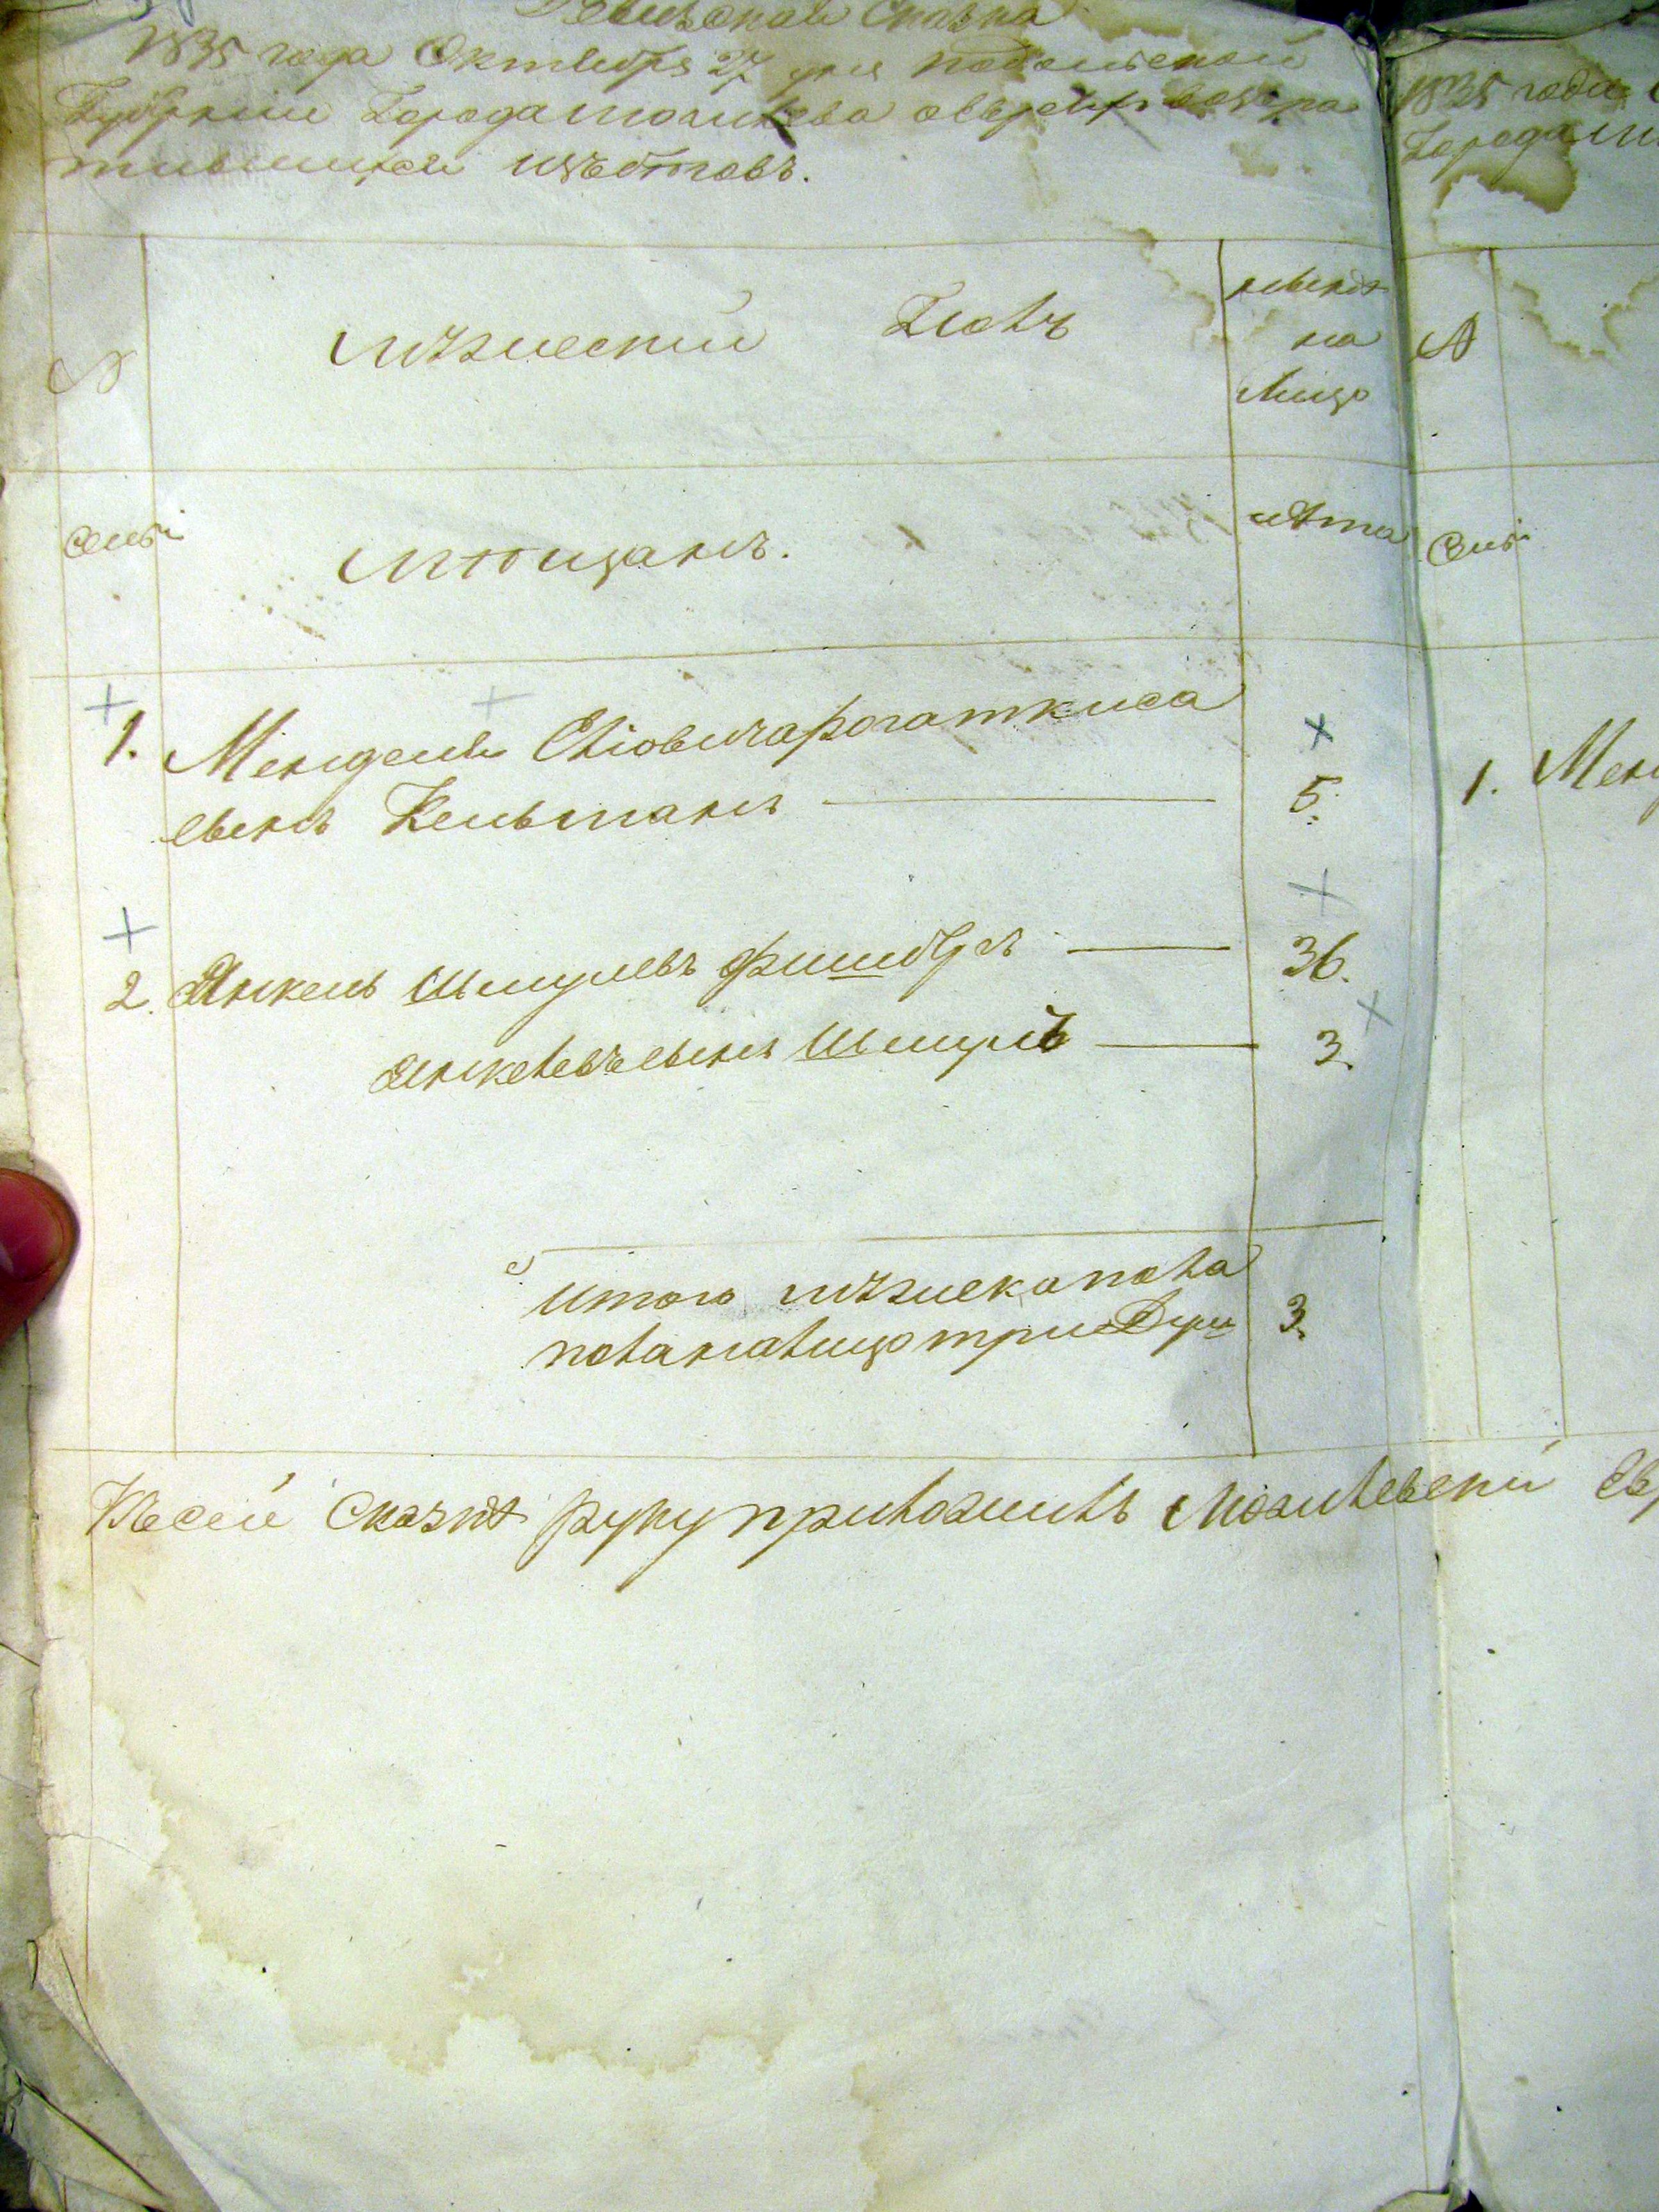 Ревизская Сказка
1835 года Октября 27 дня подольской
Губернии Города могилева овъреяхъ возвра
тившихся изъбѣговъ.
№
мужеский Полъ
нынѣ
на
лицо
Семьи
мѣщанъ.
лѣта
1. Мендель
сынъ Кельманъ 5.
2. Янкель Шмулевъ Фишберъ 36.
Янкелевъ сынъ Шмуль 3.
Итого мужеска пола
налицо три Души 3.
Ксей Сказкѣ руку приложилъ Могилевский Ев
1835 года
Города
№
Семьи
1. Менд